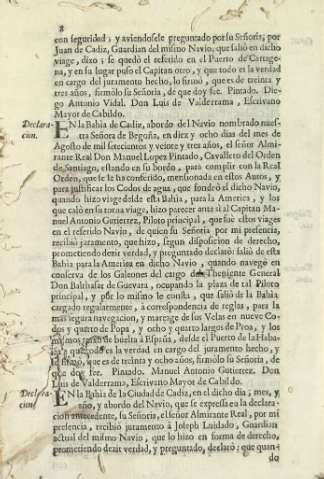 8
con seguridad; y aviendosele preguntado por su Señoria, por
Juan de Cadiz, Guardian del mismo Navio, que salió en dicho
viage, dixo; se quedó el referido en el Puerto de Cartage-
na, y en su lugar puso el Capitan otro, y que todo es la verdad
en cargo del juramento hecho, lo firmò, que es de treinta y
tres años, firmólo su Señoria, de que doy fee. Pintado. Die-
go Antonio Vidal. Don Luis de Valderrama, Escrivano
Mayor de Cabildo.
Declara-
cion.
EN la Bahia de Cadiz, abordo del Navio nombrado nues-
tra Señora de Begoña, en diez y ocho dias del mes de
Agosto de mil setecientos y veinte y tres años, el señor Almi-
rante Real Don Manuel Lopez Pintado, Cavallero del Orden
de Santiago, estando en su bordo, para cumplir con la Real
Orden, que se le ha conferido, mensionada en estos Autos, y
para justificar los Codos de agua, que fondeó el dicho Navio,
quando hizo viage desde esta Bahia, para la America, y los
que caló en su torna viage, hizo parecer ante sí al Capitan Ma-
nuel Antonio Gutierrez, Piloto principal, que fue estos viages
en el referido Navio, de quien su Señoria por mi presencia,
recibió juramento, que hizo, segun disposicion de derecho,
prometiendo dezir verdad, y preguntado declaró: salió de esta
Bahia para la America en dicho Navio, quando navegó en
conserva de los Galeones del cargo del Theniente General
Don Balthasar de Guevara, ocupando la plaza de tal Piloto
principal, y por lo mismo le consta, que salió de la Bahia
cargado regalarmente, à correspondencia de reglas, para la
mas segura navegacion, y mareage de sus Velas en nueve Co-
dos y quarto de Popa, y ocho y quarto largos de Proa, y los
mismos traxo de buelta à España, desde el Puerto de la Haba-
na, y que todo es la verdad en cargo del juramento hecho, y
lo firmó, que es de treinta y ocho años, firmólo su Señoria, de
que doy fee. Pintado. Manuel Antonio Gutierrez. Don
Luis de Valderrama, Escrivano Mayor de Cabildo.
Declara-
cion.
EN la Bahia de la Ciudad de Cadiz, en el dicho dia, mes, y
año, y abordo del Navio, que se expressa en la declara-
cion antecedente, su Señoria, el señor Almirante Real, por mi
presencia, recibió juramento à Joseph Luidado, Guardian
actual del mismo Navio, que lo hizo en forma de derecho,
prometiendo dezir verdad, y preguntado, declaró; que quan-
do